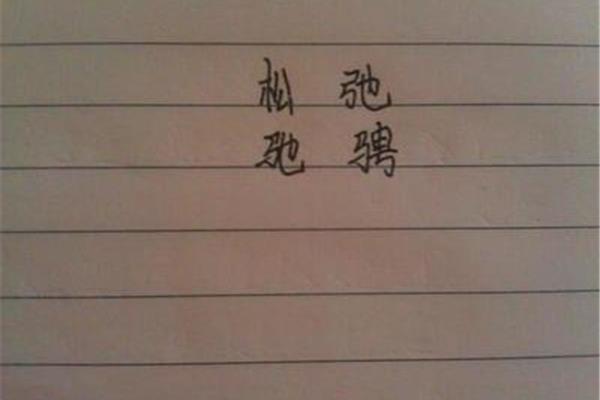 松 弛
驰 骋